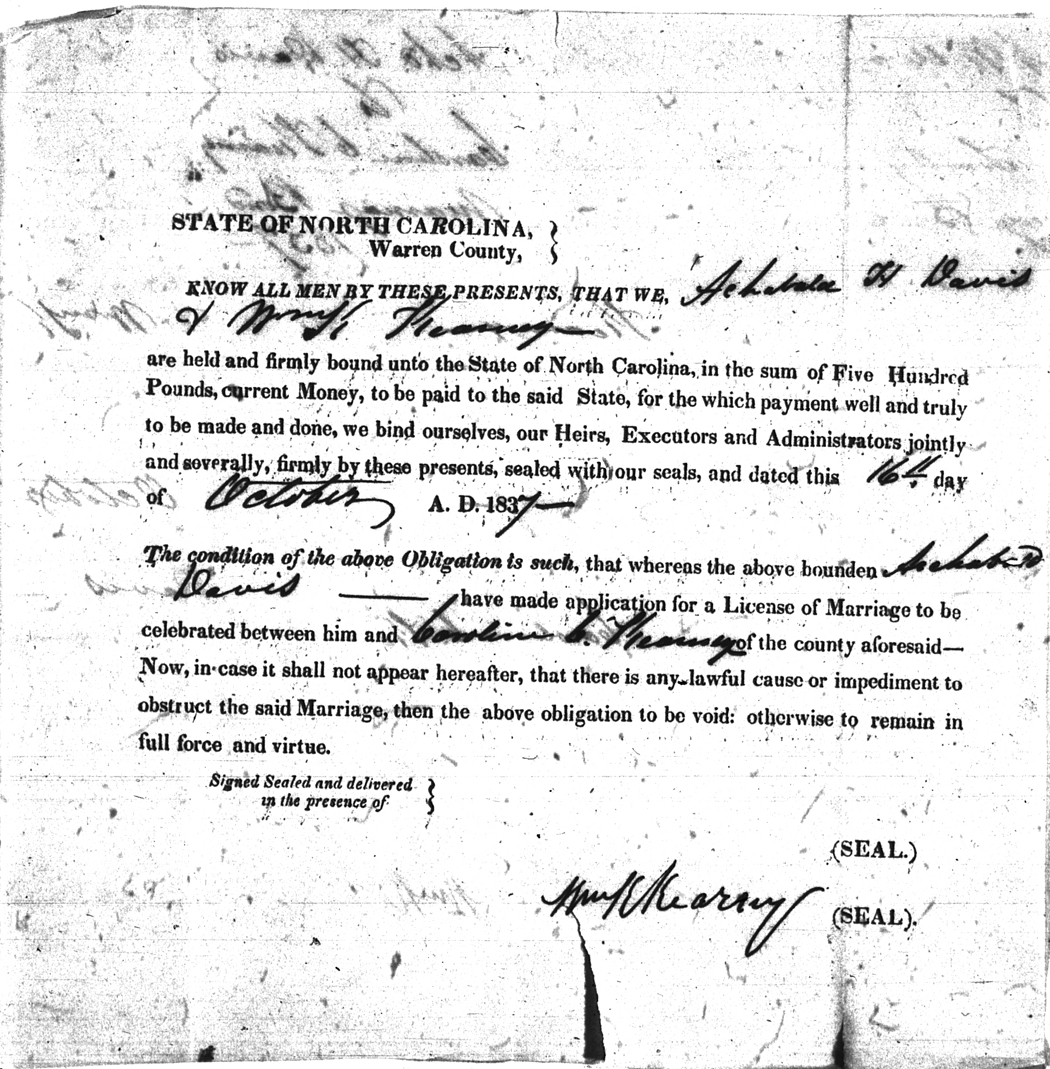 STATE OF NORTH CAROLINA,
Warren County,
KNOW ALL MEN BY THESE PRESENTS, THAT WE, H Davis
& Wm K Kearney
are held and firmly bound unto the State of North Carolina, in the sum of Five Hundred
Pounds, current Money, to be paid to the said State, for the which payment well and truly
to be made and done, we bind ourselves, our Heirs, Executors and Administrators jointly
and severally, firmly by these presents, sealed with our seals, and dated this 16th day
of October A. D. 1837
The condition of the above Obligation is such, that whereas the above bounden
Davis have made application for a License of Marriage to be
celebrated between him and Caroline C. Kearney of the county aforesaid—
Now, in case it shall not appear hereafter, that there is any lawful cause or impediment to
obstruct the said Marriage, then the above obligation to be void: otherwise to remain in
full force and virtue.
Signed Sealed and delivered
in the presence of
(SEAL.)
Wm K Kearney (SEAL).